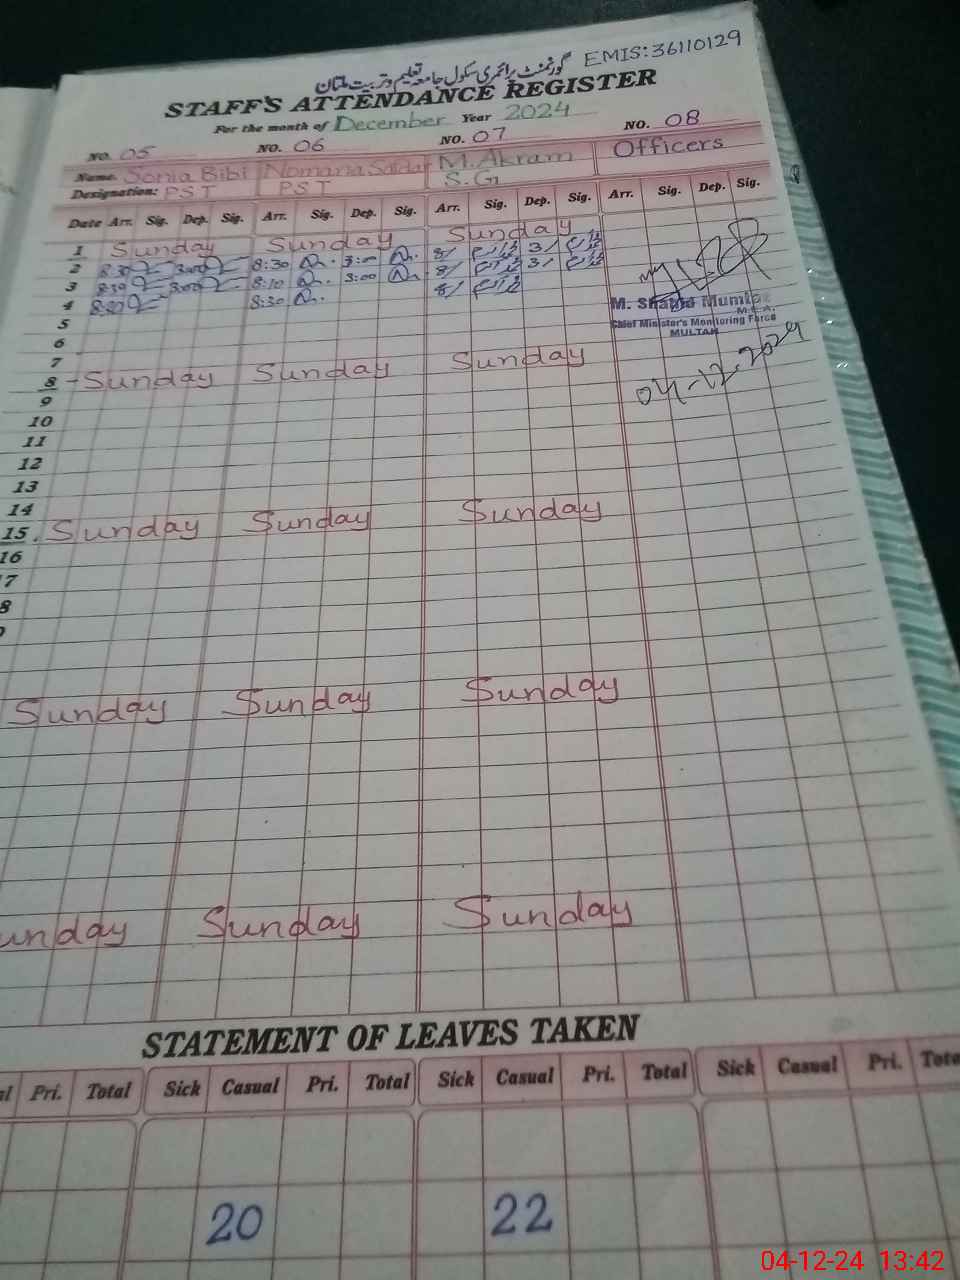 گورنمنٹ پرائمری سکول جامعہ تعلیم و تربیت ملتان EMIS: 36110129
STAFF'S ATTENDANCE REGISTER
For the month of December Year 2024
NO. 05 NO. 06 NO. 07 NO. 08
Name. Sonia Bibi Nomana Safdar M. Akram Officers
Designation: PST PST S.G
Date Arr. Sig. Dep. Sig. Arr. Sig. Dep. Sig. Arr. Sig. Dep. Sig. Arr. Sig. Dep. Sig.
1 Sunday Sunday Sunday
2 8:30 3:00 8:30 3:00 8/ 3/
3 8:30 3:00 8:10 3:00 8/ 3/
4 8:30 8:30 8/
M. Shahid Mumtaz
M.E.A.
Chief Minister's Monitoring Force
MULTAN
04-12-2024
5
6
7
8 Sunday Sunday Sunday
9
10
11
12
13
14
15 Sunday Sunday Sunday
16
7
8
Sunday Sunday Sunday
unday Sunday Sunday
STATEMENT OF LEAVES TAKEN
al Pri. Total Sick Casual Pri. Total Sick Casual Pri. Total Sick Casual Pri. Tota
20 22
04-12-24 13:42